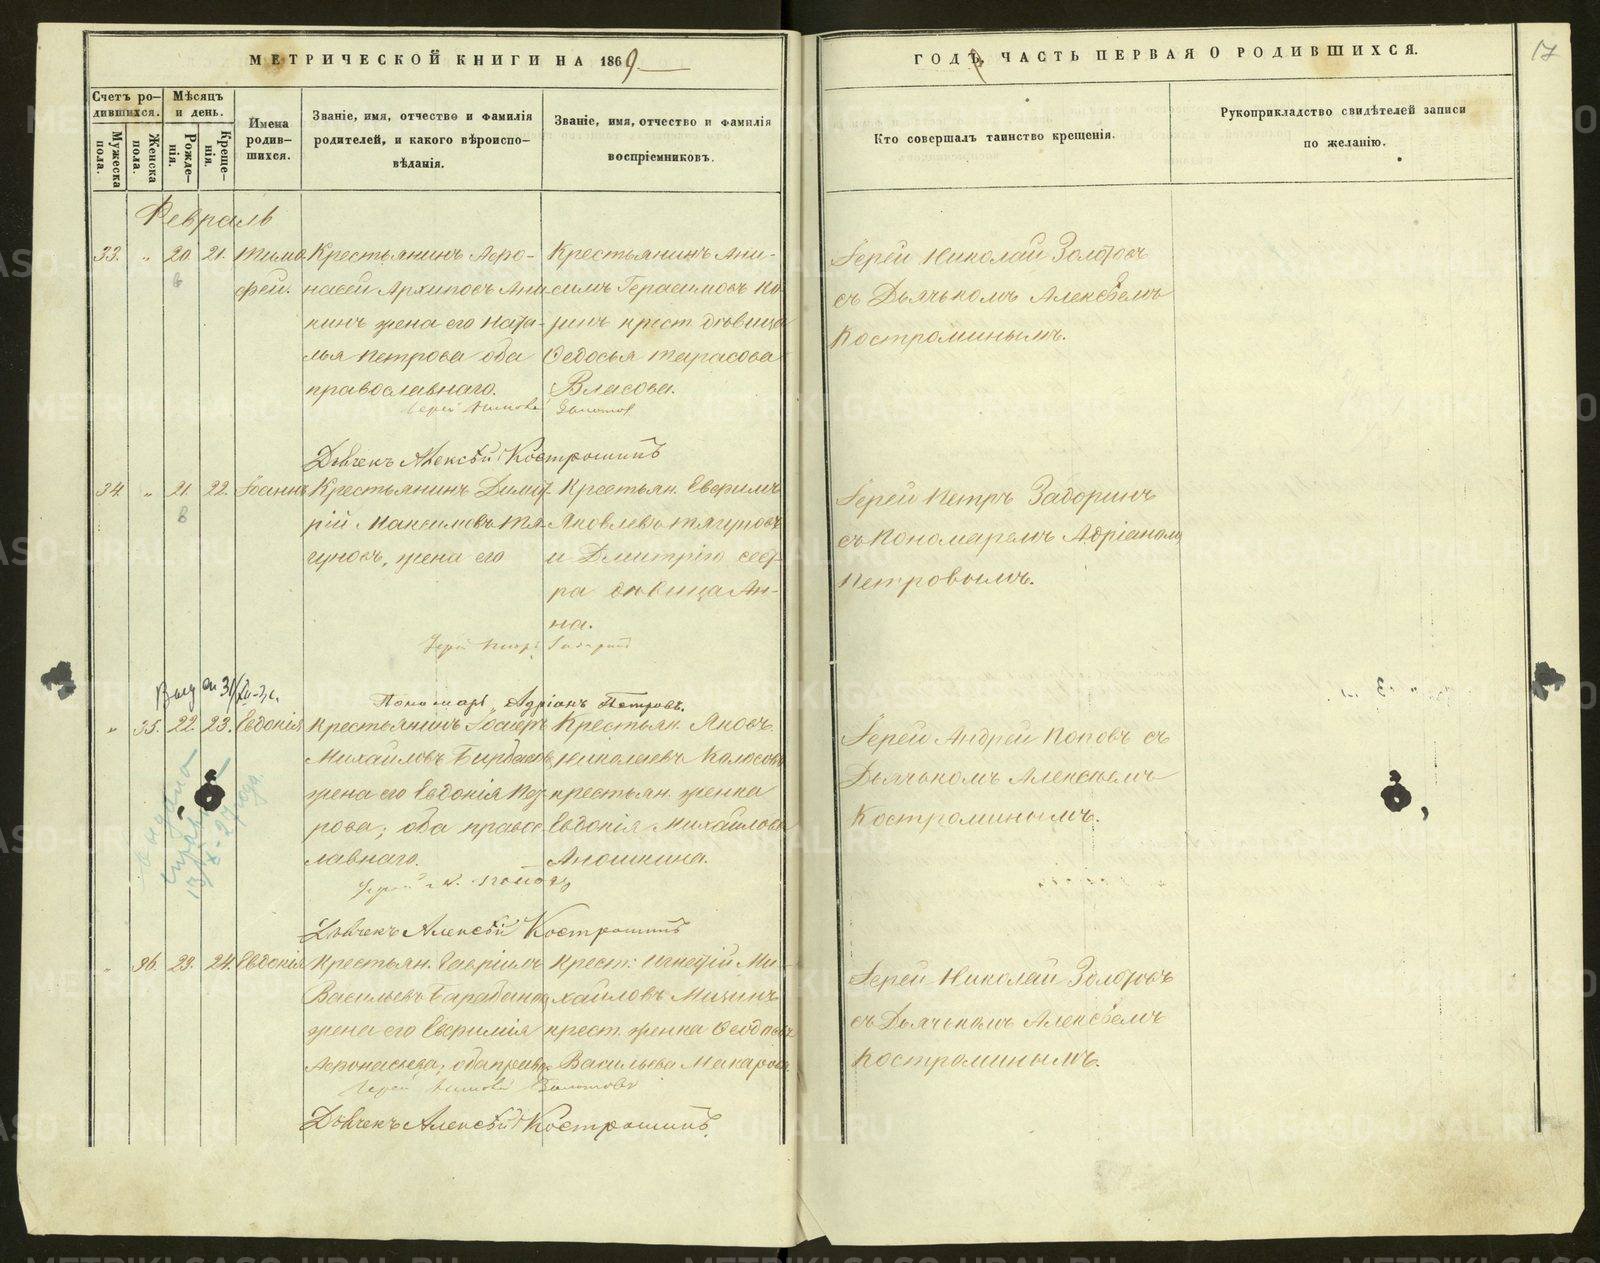 МЕТРИЧЕСКОЙ КНИГИ НА 1869
ГОДЪ, ЧАСТЬ ПЕРВАЯ О РОДИВШИХСЯ.
17
Счетъ ро-
дившихся.
Мужеска
пола.
Женска
пола.
Мѣсяцъ
и день.
Рожде-
нія.
Креще-
нія.
Имена
родив-
шихся.
Званіе, имя, отчество и фамилія
родителей, и какого вѣроиспо-
вѣданія.
Званіе, имя, отчество и фамилія
воспріемниковъ.
Кто совершалъ таинство крещенія.
Рукоприкладство свидѣтелей записи
по желанію.
Февраль
33. " 20. 21. Тимо-
фей.
Крестьянинъ Афо-
насей Архиповъ Ани-
кинъ жена его Ната-
лья Петрова оба
православнаго.
Крестьянинъ Ани-
симъ Герасимовъ
крест. дѣвица
Федосья Тарасова
Власова.
Іерей Николай Золотовъ
съ Дьячькомъ Алексѣемъ
Костроминымъ.
Іерей Николай Золотов
Дьячекъ Алексѣй Костроминъ
34 " 21. 22. Іоаннъ
Крестьянинъ Димит-
рій Максимовъ Тя-
гуновъ, жена его
Крестьян. Евфимъ
Яковлевъ Тягуновъ
и Дмитрію сест-
ра дѣвица Ан-
на.
Іерей Петръ Задоринъ
съ Пономаремъ Адріаномъ
Петровымъ.
Іерей Петръ Задорин
Пономарь Адріанъ Петровъ.
" 35. 22. 23. Евдокія
Крестьянинъ Іосифъ
Михайловъ
жена его Евдокія Пет-
рова; оба правос-
лавнаго.
Крестьян. Яковъ
Николаевъ Колосовъ
крестьян. женка
Евдокія Михайлова
Аношкина.
Іерей Андрей Поповъ съ
Дьячькомъ Алексѣемъ
Костроминымъ.
Іерей А. Поповъ
Дьячекъ Алексѣй Костроминъ
" 36. 23. 24. Евдокія
Крестьян. Гавріилъ
Васильевъ
жена его Евфимія
Афонасьева; оба правос.
Крест: Игнатій Ми-
хайловъ Мишинъ
крест. женка Феодосья
Васильева Макарова
Іерей Николай Золотовъ
съ Дьячькомъ Алексѣемъ
Костроминымъ.
Іерей Николай Золотовъ
Дьячекъ Алексѣй Костроминъ.
METRIKI.GASO-URAL.RU